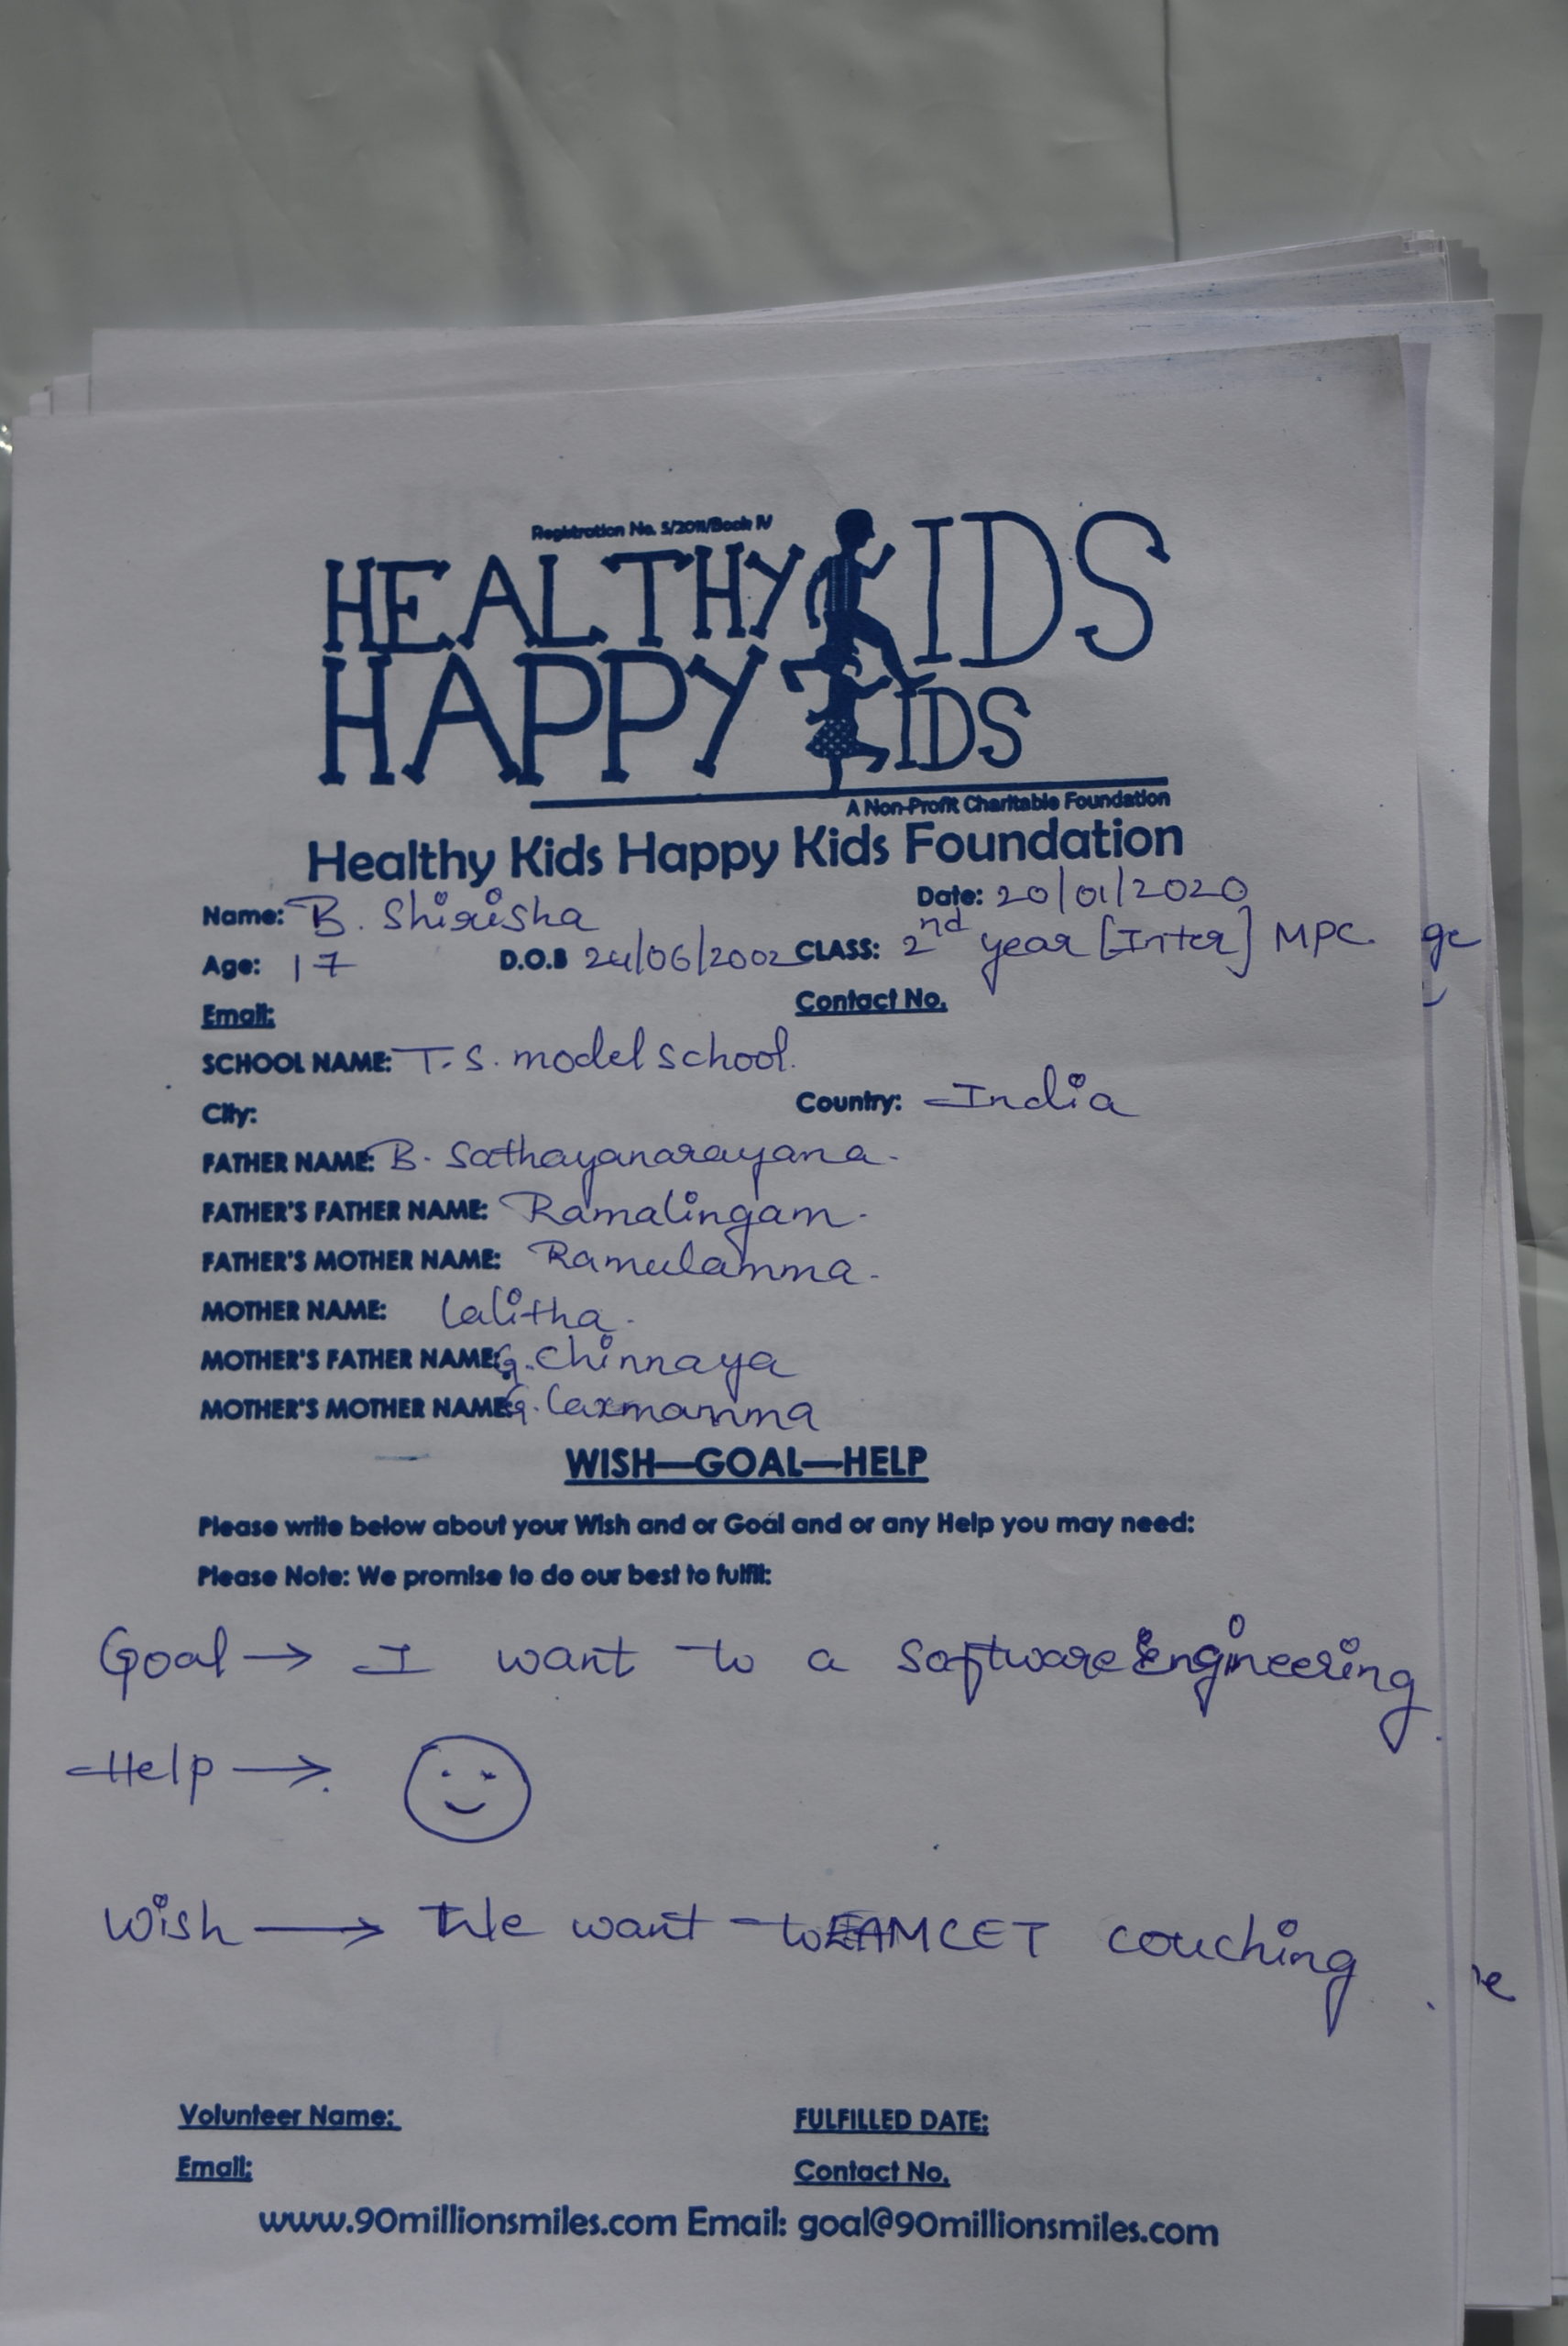 Registration No. 5/2011/Book IV
HEALTHY KIDS
HAPPY KIDS
A Non-Profit Charitable Foundation
Healthy Kids Happy Kids Foundation
Name: B. Shirisha Date: 20/01/2020
Age: 17 D.O.B 24/06/2002 CLASS: 2nd year [Inter] MPC.
Email: Contact No.
SCHOOL NAME: T.S. model school.
City: Country: India
FATHER NAME: B. Sathayanarayana.
FATHER'S FATHER NAME: Ramalingam.
FATHER'S MOTHER NAME: Ramulamma.
MOTHER NAME: Lalitha.
MOTHER'S FATHER NAME: G. Chinnaya
MOTHER'S MOTHER NAME: G. Laxmamma
WISH—GOAL—HELP
Please write below about your Wish and or Goal and or any Help you may need:
Please Note: We promise to do our best to fulfil:
Goal → I want to a Software Engineering.
Help →.
Wish → We want to EAMCET couching.
Volunteer Name: FULFILLED DATE:
Email: Contact No.
www.90millionsmiles.com Email: goal@90millionsmiles.com